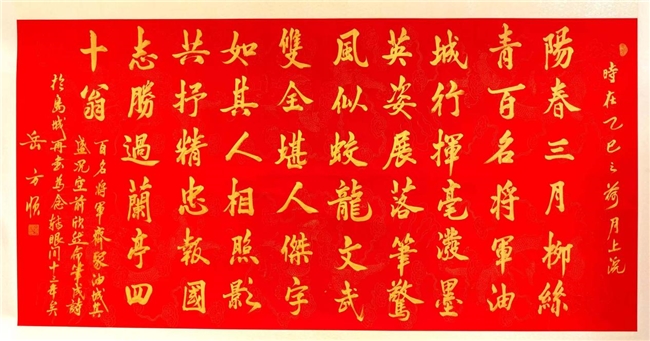 時在乙巳之荷月上浣
陽春三月柳絲
青百名將軍油
城行揮毫潑墨
英姿展落筆驚
風似蛟龍文武
雙全堪人傑字
如其人相照影
共抒精忠報國
志勝過蘭亭四
十翁
百名將軍齊聚油城其
盛況空前欣然命筆成詩
於鳥城再書為念轉眼間十年矣
岳方順